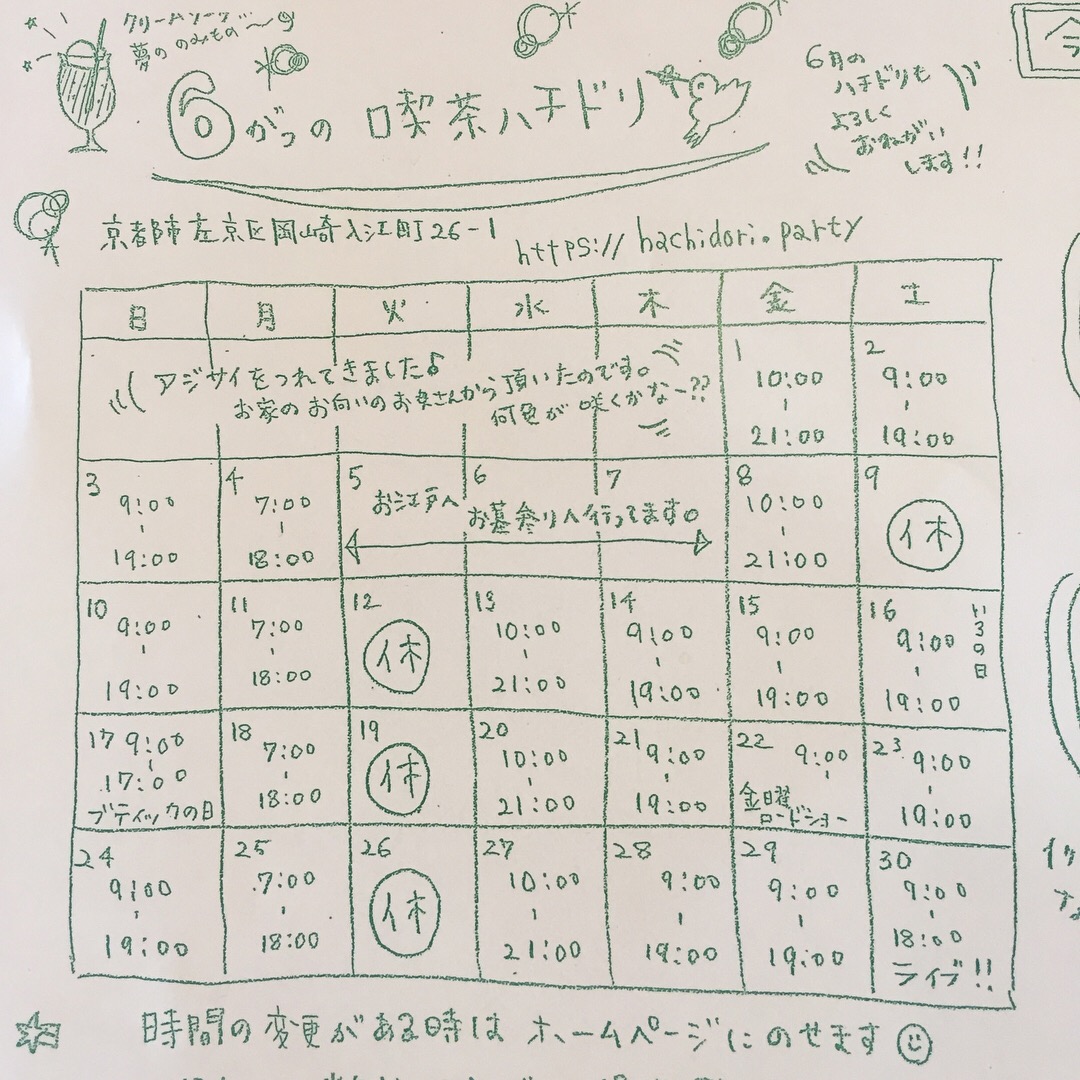 クリームソーダ
夢ののみもの〜
6がつの 喫茶ハチドリ
6月の
ハチドリも
よろしく
おねがい
します!!
今
京都市左京区岡崎入江町26-1
https://hachidori.party
日 月 火 水 木 金 土
アジサイをつれてきました♪
お家のお向いのお奥さんから頂いたのです。
何色が咲くかなー??
1 10:00 - 21:00
2 9:00 - 19:00
3 9:00 - 19:00
4 7:00 - 18:00
5 6 7 お江戸へ お墓参りへ行ってます。
8 10:00 - 21:00
9 休
10 9:00 - 19:00
11 7:00 - 18:00
12 休
13 10:00 - 21:00
14 9:00 - 19:00
15 9:00 - 19:00
16 9:00 - 19:00
17 9:00 - 17:00 ブティックの日
18 7:00 - 18:00
19 休
20 10:00 - 21:00
21 9:00 - 19:00
22 9:00 - 金曜ロードショー
23 9:00 - 19:00
24 9:00 - 19:00
25 7:00 - 18:00
26 休
27 10:00 - 21:00
28 9:00 - 19:00
29 9:00 - 19:00
30 9:00 - 18:00 ライブ!!
時間の変更がある時は ホームページにのせます